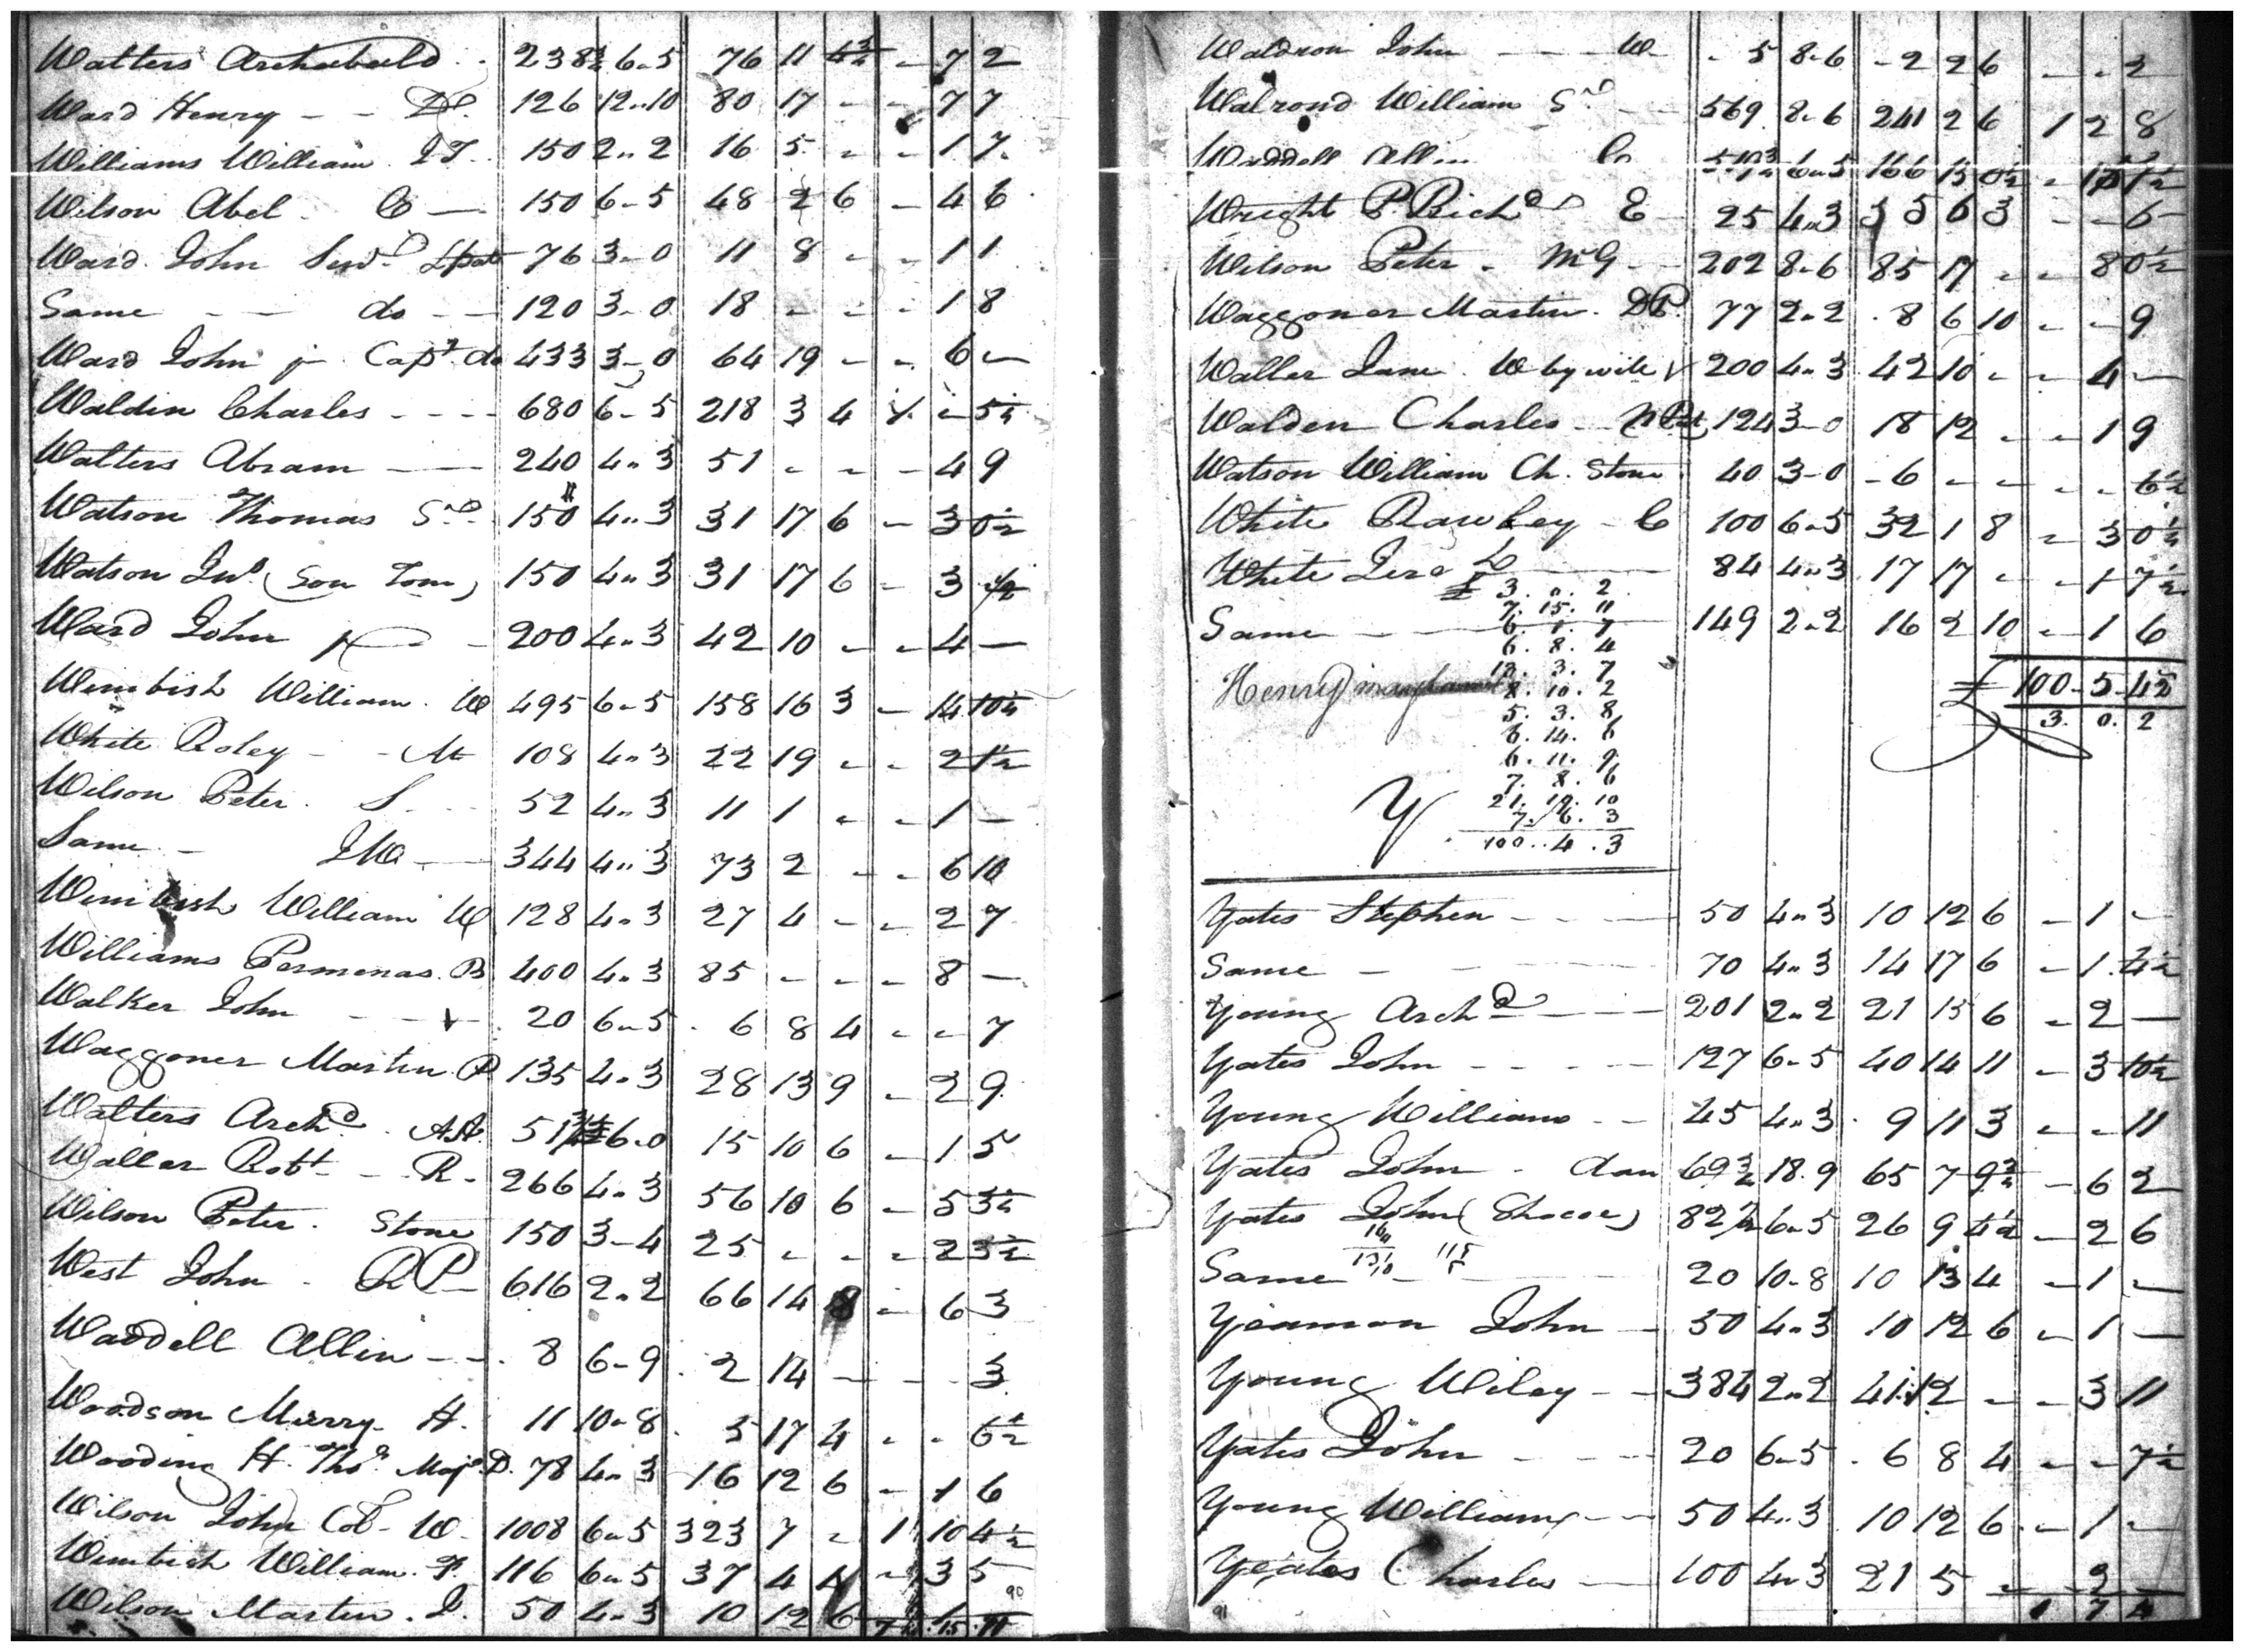 Walters Archibald . . 238 3/4 6-5 76 11 4 3/4 - 7 2
Ward Henry - - Do. 126 12..10 80 17 - - 7 7
Williams William . IT. 150 2..2 16 5 - - 1 7
Wilson Abel . C — 150 6-5 48 2 6 - 4 6
Ward John Senr. 76 3-0 11 8 - - 1 1
Same - - do - - 120 3-0 18 - - - 1 8
Ward John jr Capt. do 433 3-0 64 19 - - 6 -
Waldin Charles - - - - 680 6-5 218 3 4 1 - 5 1/4
Walters Abram — 240 4..3 51 - - - 4 9
Watson Thomas Snr. 150 4..3 31 17 6 - 3 0 1/2
Watson Jno. (Son Tom) 150 4..3 31 17 6 - 3 1/2
Ward John 200 4..3 42 10 - - 4 —
Wimbish William . W 495 6-5 158 16 3 - 14 10 1/4
White Roley - - 108 4..3 22 19 - - 2 1 1/2
Wilson Peter . S. 52 4..3 11 1 - - 1 -
Same - 344 4..3 73 2 - - 6 10
Wimbish William W 128 4..3 27 4 - - 2 7
Williams Permenas . B 400 4..3 85 - - - 8 —
Walker John - - - . 20 6-5 . 6 8 4 - - 7
Waggoner Martin P 135 4..3 28 13 9 - 2 9
Walters Archd. . AA. 51 3/4 6-0 15 10 6 - 1 5
Waller Robt - R - 266 4..3 56 10 6 - 5 3 1/4
Wilson Peter . Stone 150 3-4 25 - - - 2 3 1/2
West John - RP - 616 2..2 66 14 8 - 6 3
Waddell Allin - - . 8 6-9 . 2 14 - - - 3
Woodson Mirry . H. 11 10-8 . 5 17 4 - - 6 1/2
Wooding H. Thos. Majr. D. 78 4..3 16 12 6 - 1 6
Wilson John Col. W. 1008 6..5 323 7 - 1 10 4 1/2
Wimbish William . 116 6..5 37 4 4 - 3 5
90
Wilson Martin . I. 50 4..3 10 12 6 - 1 -
7 . 15 . 11
Waldron John - - - W - . 5 8-6 - 2 2 6 - - 2
Walrond William Snr. - - 569 8-6 241 2 6 1 2 8
Waddell Allin C 6-5 166 15 0 1/2
Wright P. Richd. E - 25 4..3 5 6 3 - - 6 -
Wilson Peter - McG - - 202 8-6 85 17 - - 8 0 1/2
Waggoner Martin . DP. 77 2..2 . 8 6 10 - - 9
Waller Jane . W by wile 200 4..3 42 10 - - 4 -
Walden Charles - 124 3-0 18 12 - - 1 9
Watson William Ch. Stone 40 3-0 - 6 - - - - 6 1/2
White Rawley - C 100 6-5 32 1 8 - 3 0 1/4
White Jere 84 4..3 17 17 - - 1 7 1/2
£ 3 . 0 . 2
7 . 15 . 11
Same - - 6 . 1 . 7 149 2..2 16 2 10 - 1 6
6 . 8 . 4
12 . 3 . 7 £ 100 - 5 - 4 1/2
Henry 8 . 10 . 2
5 . 3 . 8 3 . 0 . 2
6 . 14 . 6
6 . 11 . 9
7 . 8 . 6
Y 21 . 19 . 10
7 . 6 . 3
100 . . 4 . 3
Yates Stephen - - - 50 4..3 10 12 6 - 1 -
Same - - 70 4..3 14 17 6 - 1 4 1/2
Young Archd. - - - 201 2..2 21 15 6 - 2 —
Yates John - - - - 127 6-5 40 14 11 - 3 10 1/2
Young William - - 45 4..3 . 9 11 3 - - 11
Yates John - dan 69 3/4 18-9 65 7 9 3/4 - 6 2
Yates John ( Shocoe ) 82 1/2 6-5 26 9 4 1/2 - 2 6
Same - 20 10-8 10 13 4 - 1 -
Yeaman John - 50 4..3 10 12 6 - 1 —
Young Wiley - - 384 2..2 41 12 - - 3 11
Yates John - - - 20 6-5 . 6 8 4 - - 7 1/2
Young William - - 50 4..3 10 12 6 - 1 -
Yeates Charles — 100 4..3 21 5 - - 2 -
91
1 7 4